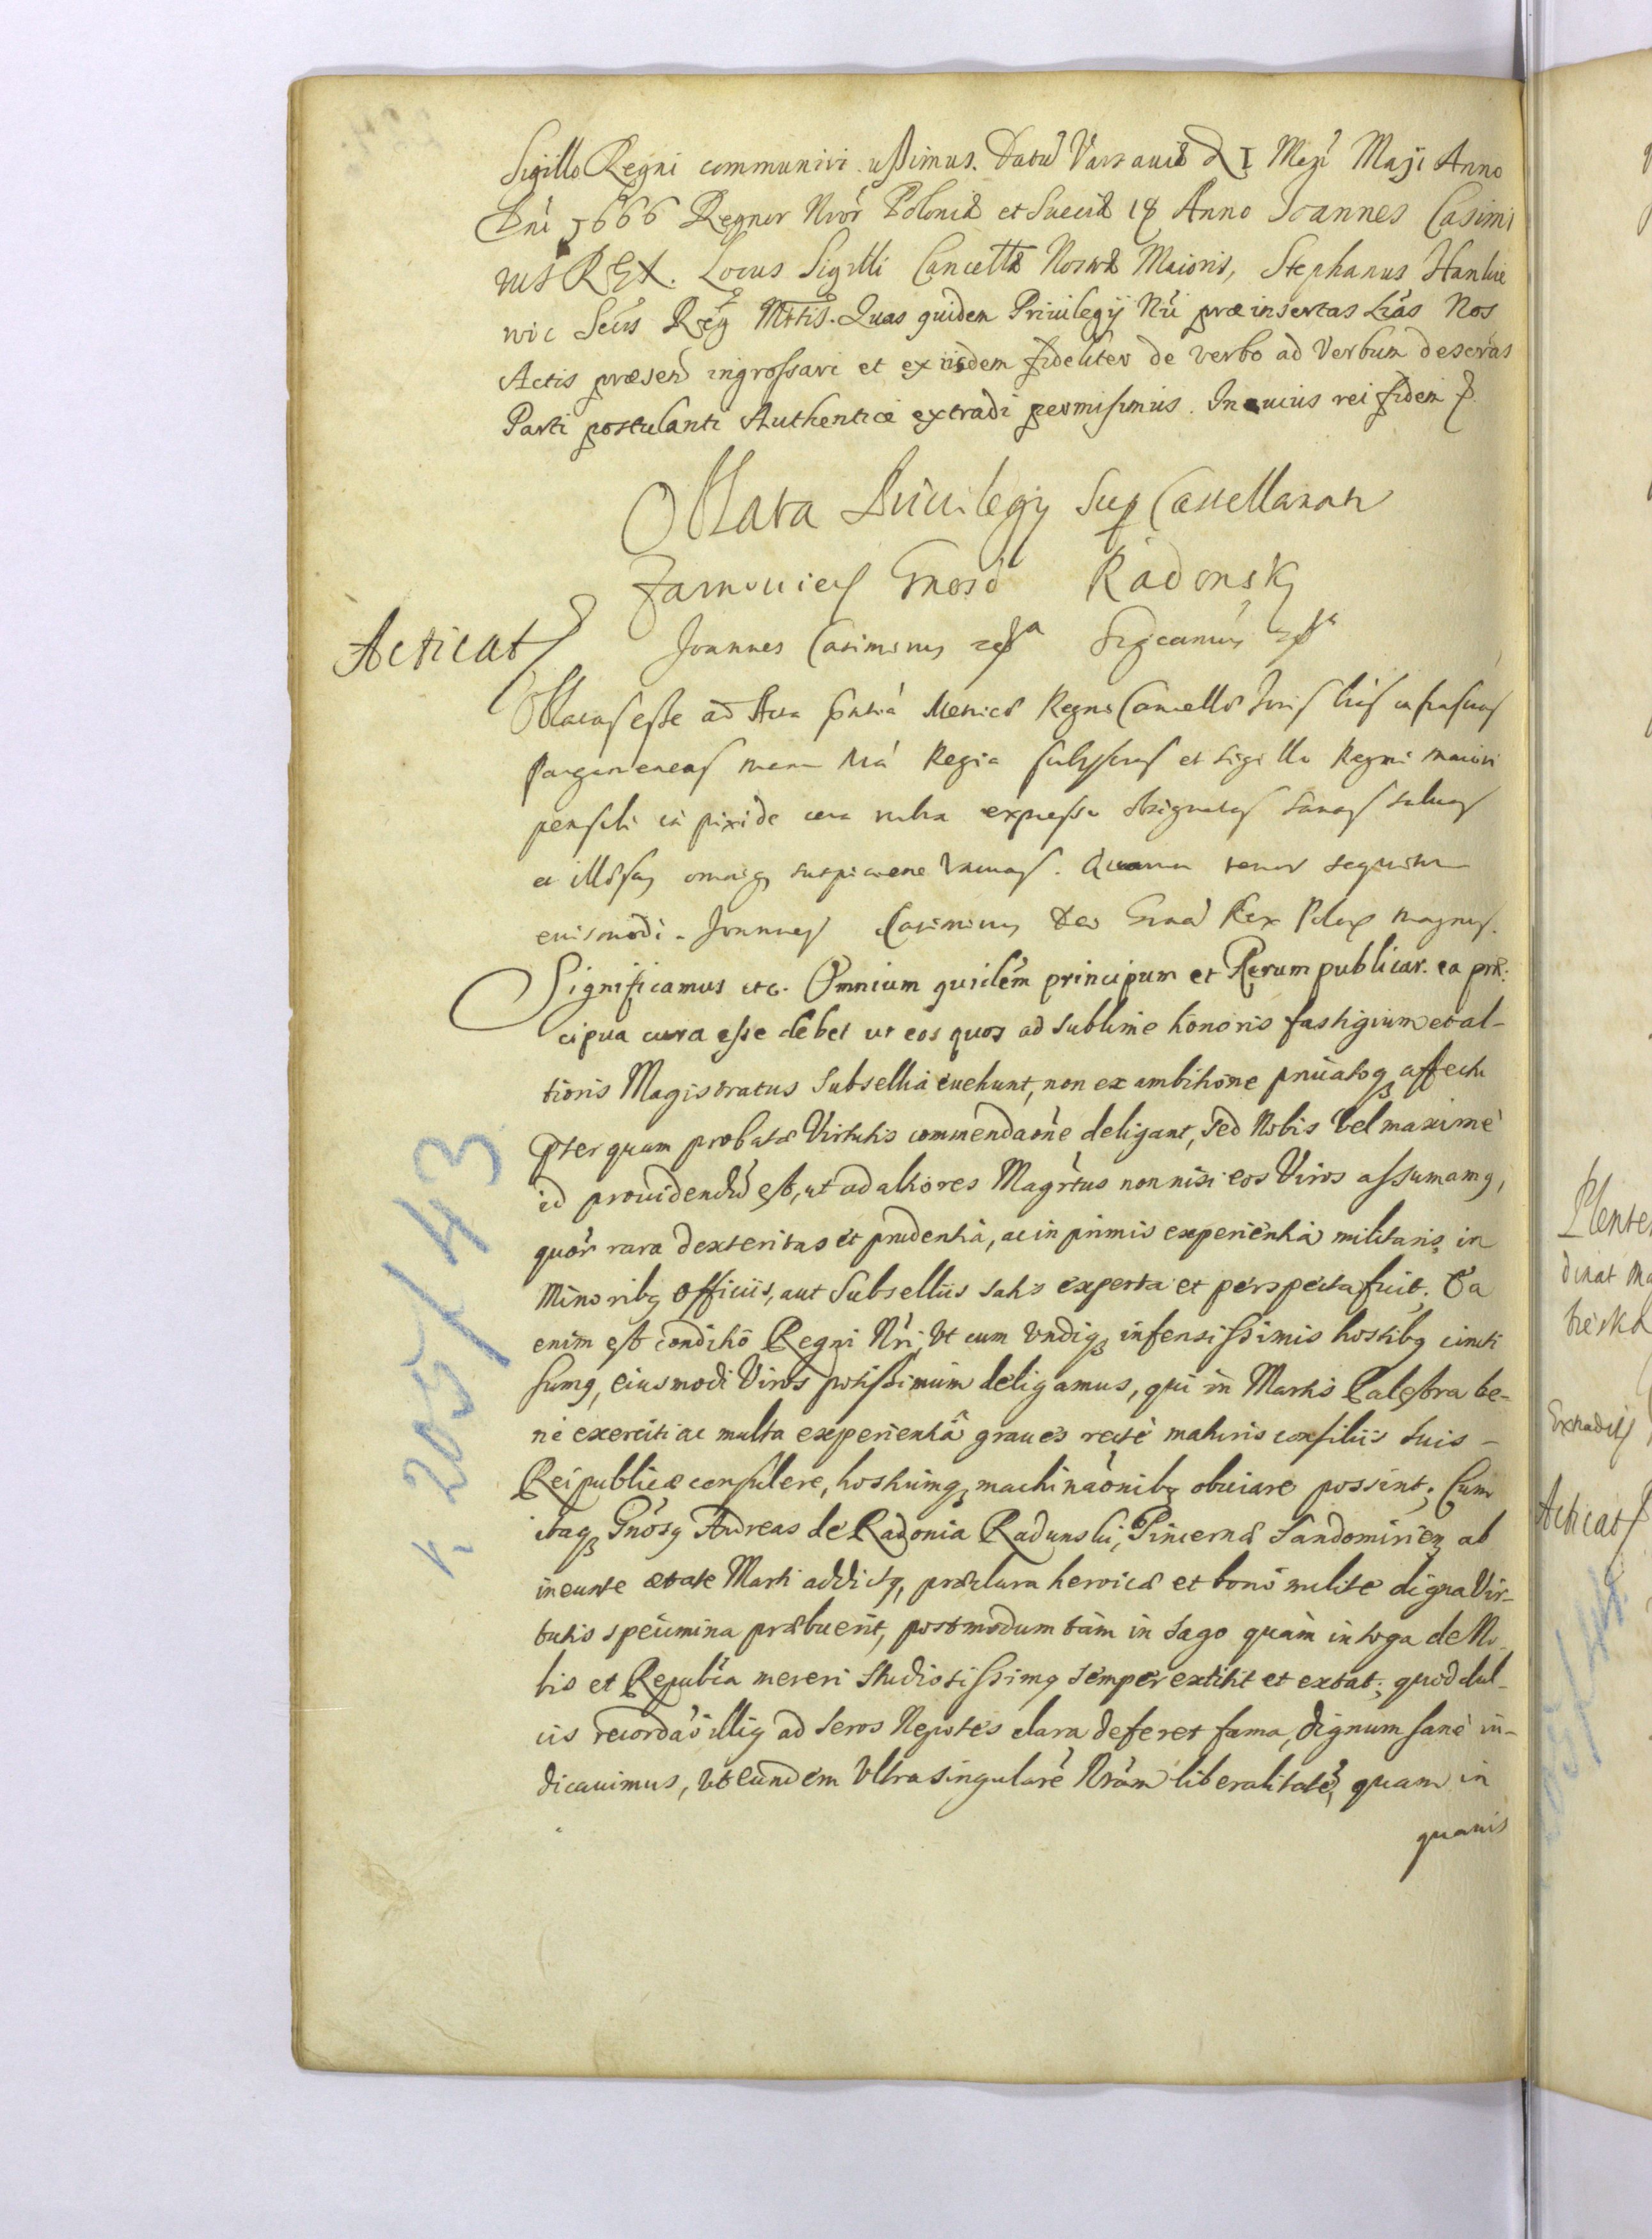 Sigillo Regni communiri iussimus. Datu Varsauiæ d I Mens Maji Anno
Dni 1666 Regnor Nror Poloniæ et Sueciæ 18 Anno Joannes Casimi
rus REX. Locus Sigilli Cancellæ Maioris, Stephanus Hankie
wic Secris Reg Mttis. Quas quidem Priuilegij Nri præinsertas Lras Nos
Actis præsen ingrossari et ex iisdem fideliter de verbo ad Verbum descrās
Parti postulanti Authentice extradi permisimus. In cuius rei fidem p.
Oblata Priuilegij Sup Castellanat
Zarnouien Gnoso Radonsky
Acticat
Joannes Casimirus Significamus
Oblatas esse ad Acta Metrices Regni Cancellæ Lras infrascras
Pargameneas manu Nra Regia subscras et Sigillo Regni maiori
pensili in pixide cera rubra expresso obsignatas sanas saluas
et illæsas omniq suspicione vacuas. Quarum tenor sequitur
eiusmodi. Joannes Casimirus Dei Gratia Rex Polo magnus.
Significamus etc. Omnium quidem principum et Rerum publicar. ea præ:
cipua cura esse debet ut eos quos ad sublime honoris fastigium et al-
tioris Magistratus Subsellia euehunt, non ex ambitione priuatoq affectu
pter quam probatæ Virtutis commendaone deligant, sed Nobis vel maxime
id prouidendu est, ut ad altiores Magrtus non nisi eos Viros assumamq,
quor rara dexteritas et prudentia, ac in primis experientia militaris in
Minoribq officiis, aut Subselliis satis experta et perspecta fuit. Ea
enim est conditio Regni Nri, Vt cum vndiq infensissimis hostibq cincti
sumq, eiusmodi Viros potissimum deligamus, qui in Martis Palestra be-
ne exerciti ac multa experientia graues recte maturis consiliis suis -
Reipublicæ consulere, hostiumq machinaonibq obuiare possint. Cum
itaq Gnosq Andreas de Radonia Radunski, Pincerna Sandomirien ab
ineunte ætate Marti addictq, præclara heroicæ et bono milite digna Vir-
tutis specimina præbuerit, postmodum tam in sago quam in toga de No-
bis et Republca mereri studiosissimq semper extitit et extat, quod dul-
cis recordao illiq ad seros Nepotes clara deferet fama, dignum sane iu-
dicauimus, vt eundem Vltra singulare Nram liberalitate, quam in
quauis
k. 205/43
Plente
dinat Ma
Extradit
Acticat